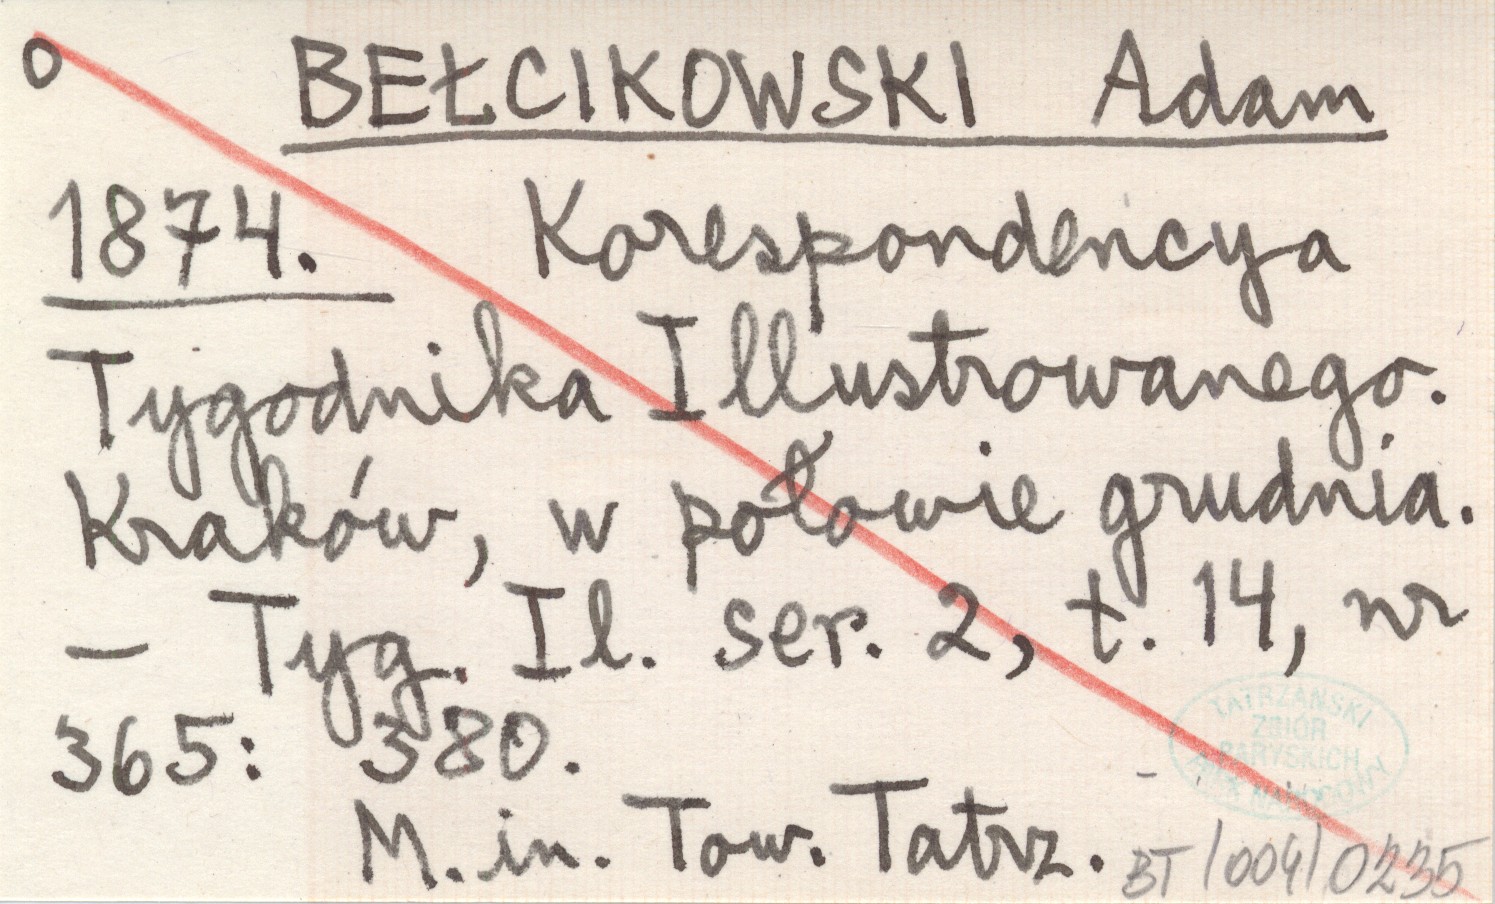 o BEŁCIKOWSKI Adam
1874. Korespondencya
Tygodnika Illustrowanego.
Kraków, w połowie grudnia.
— Tyg. Il. ser. 2, t. 14, nr
365: 380.
M. in. Tow. Tatrz.
TATRZAŃSKI
ZBIÓR
PARYSKICH
BT/004/0235